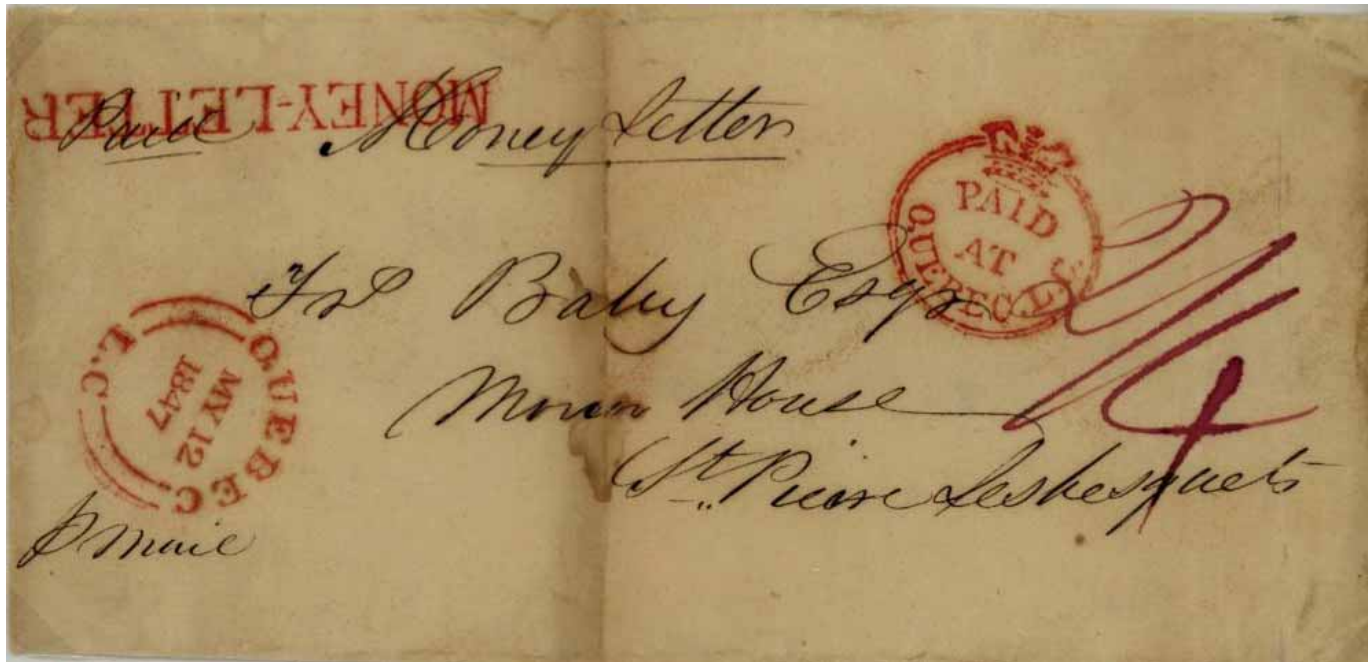 MONEY-LETTER
Paid Money Letter
PAID
AT
QUEBEC L.C.
Frs Baby Esqr
2/4
House
St. Pierre Lesbesquets
QUEBEC
L.C
MY 12
1847
P Mail